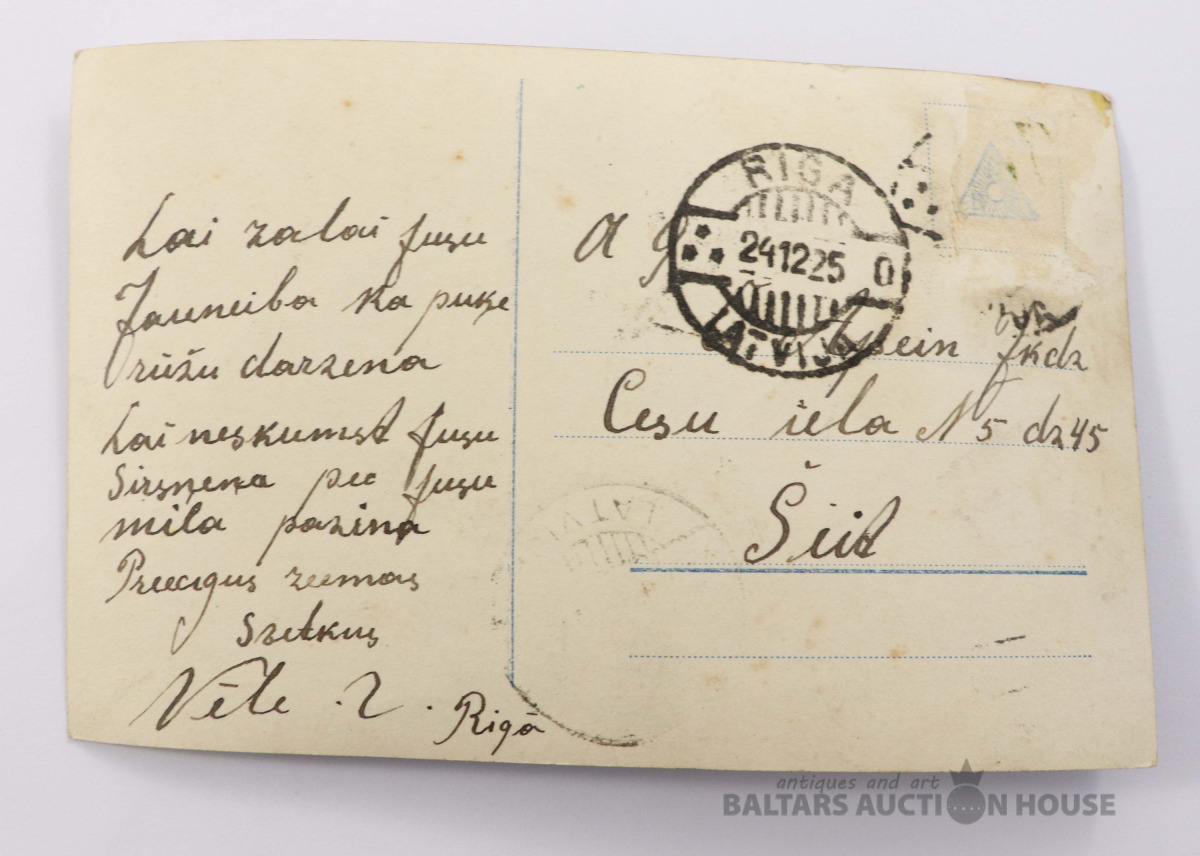 Lai zalai juşu
Jauneiba ka puķe
rūžu darzena
Lai neşkumst juşu
Sirşnena pec juşu
mila pazina
Preecigus zeemas
Svetkus
Vēle . Z .
Rigā
A
RIGA
241225 0
LATVIJA
fkdz
Cesu iela N 5 dz 45
Šeit
LATVI
antiques and art
BALTARS AUCTION HOUSE